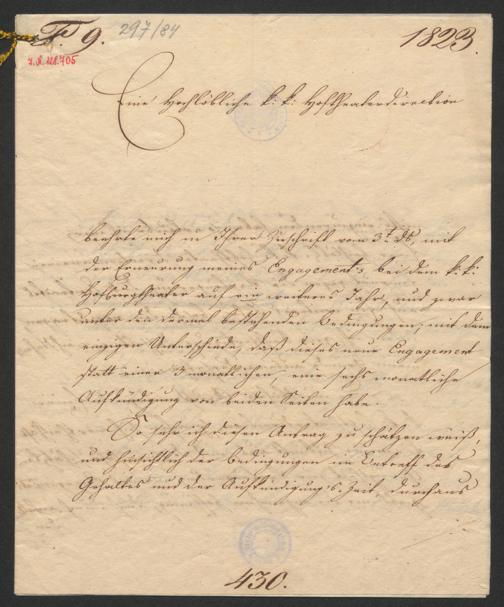 F. 9.
297/84
1823.
Eine Hochlöbliche k: k: Hoftheaterdirection
beehrte mich in Ihrer Zuschrift vom 3t ds, mit
der Erneurung meines Engagement's, bei dem k: k:
Hofburgtheater auf ein weiteres Jahr, und zwar
unter den dermal bestehenden Bedingungen, mit dem
einzigen Unterschiede, daß dieses neue Engagement
statt einer 3 monatlichen, eine sechs monatliche
Aufkündigung von beiden Seiten habe.
So sehr ich diesen Antrag zu schätzen weiß,
und hinsichtlich der Bedingungen im Betreff des
Gehaltes und der Aufkündigung's Zeit, durchaus
430.